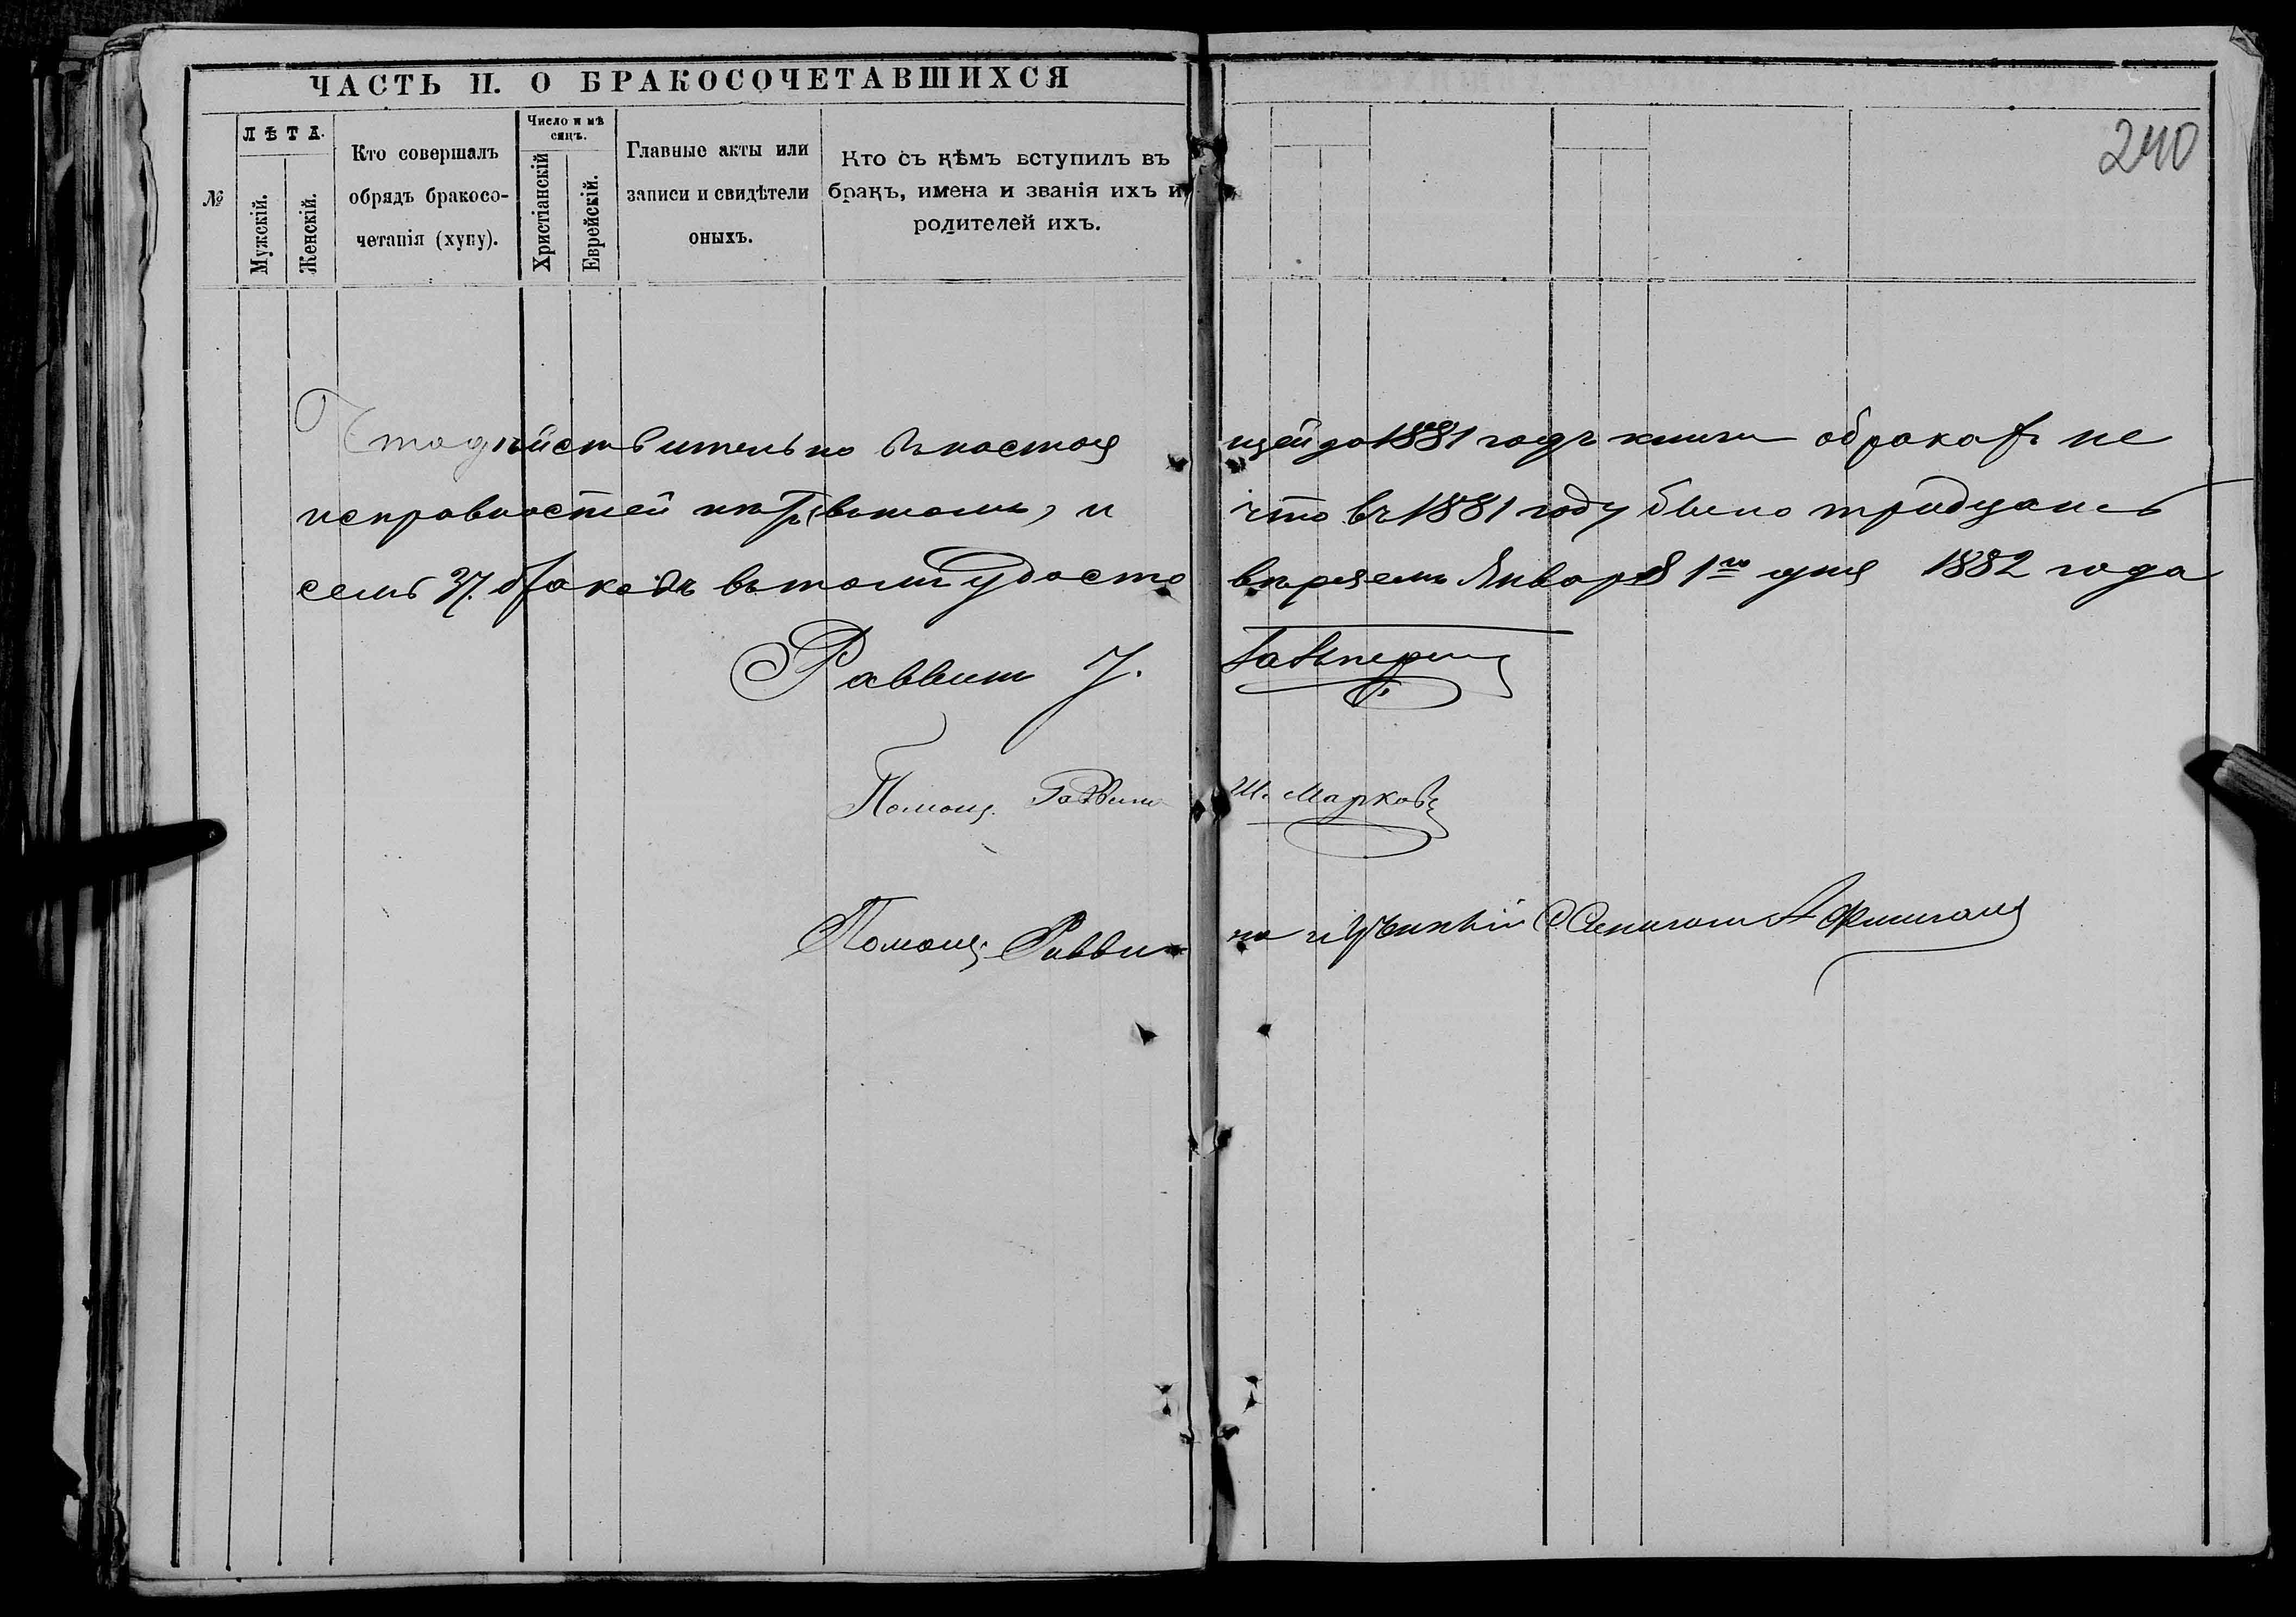 ЧАСТЬ II. О БРАКОСОЧЕТАВШИХСЯ
240
№
ЛѢТА.
Мужскій.
Женскій.
Кто совершалъ
обрядъ бракосо-
четанія (хупу).
Число и мѣ
сяцъ.
Христіанскій
Еврейскій.
Главные акты или
записи и свидѣтели
оныхъ.
Кто съ кѣмъ вступилъ въ
бракъ, имена и званія ихъ и
родителей ихъ.
Что дѣйствительно въ настоя щей до 1881 годъ книги о бракахъ не
исправностей нѣтъ въ томъ, и что въ 1881 году было тридцать
семь 37. браковъ въ томъ удосто вѣряемъ Января 1го дня 1882 года
Раввинъ
Помощ. Раввина Ш. Марковъ
Помощ. Равви на